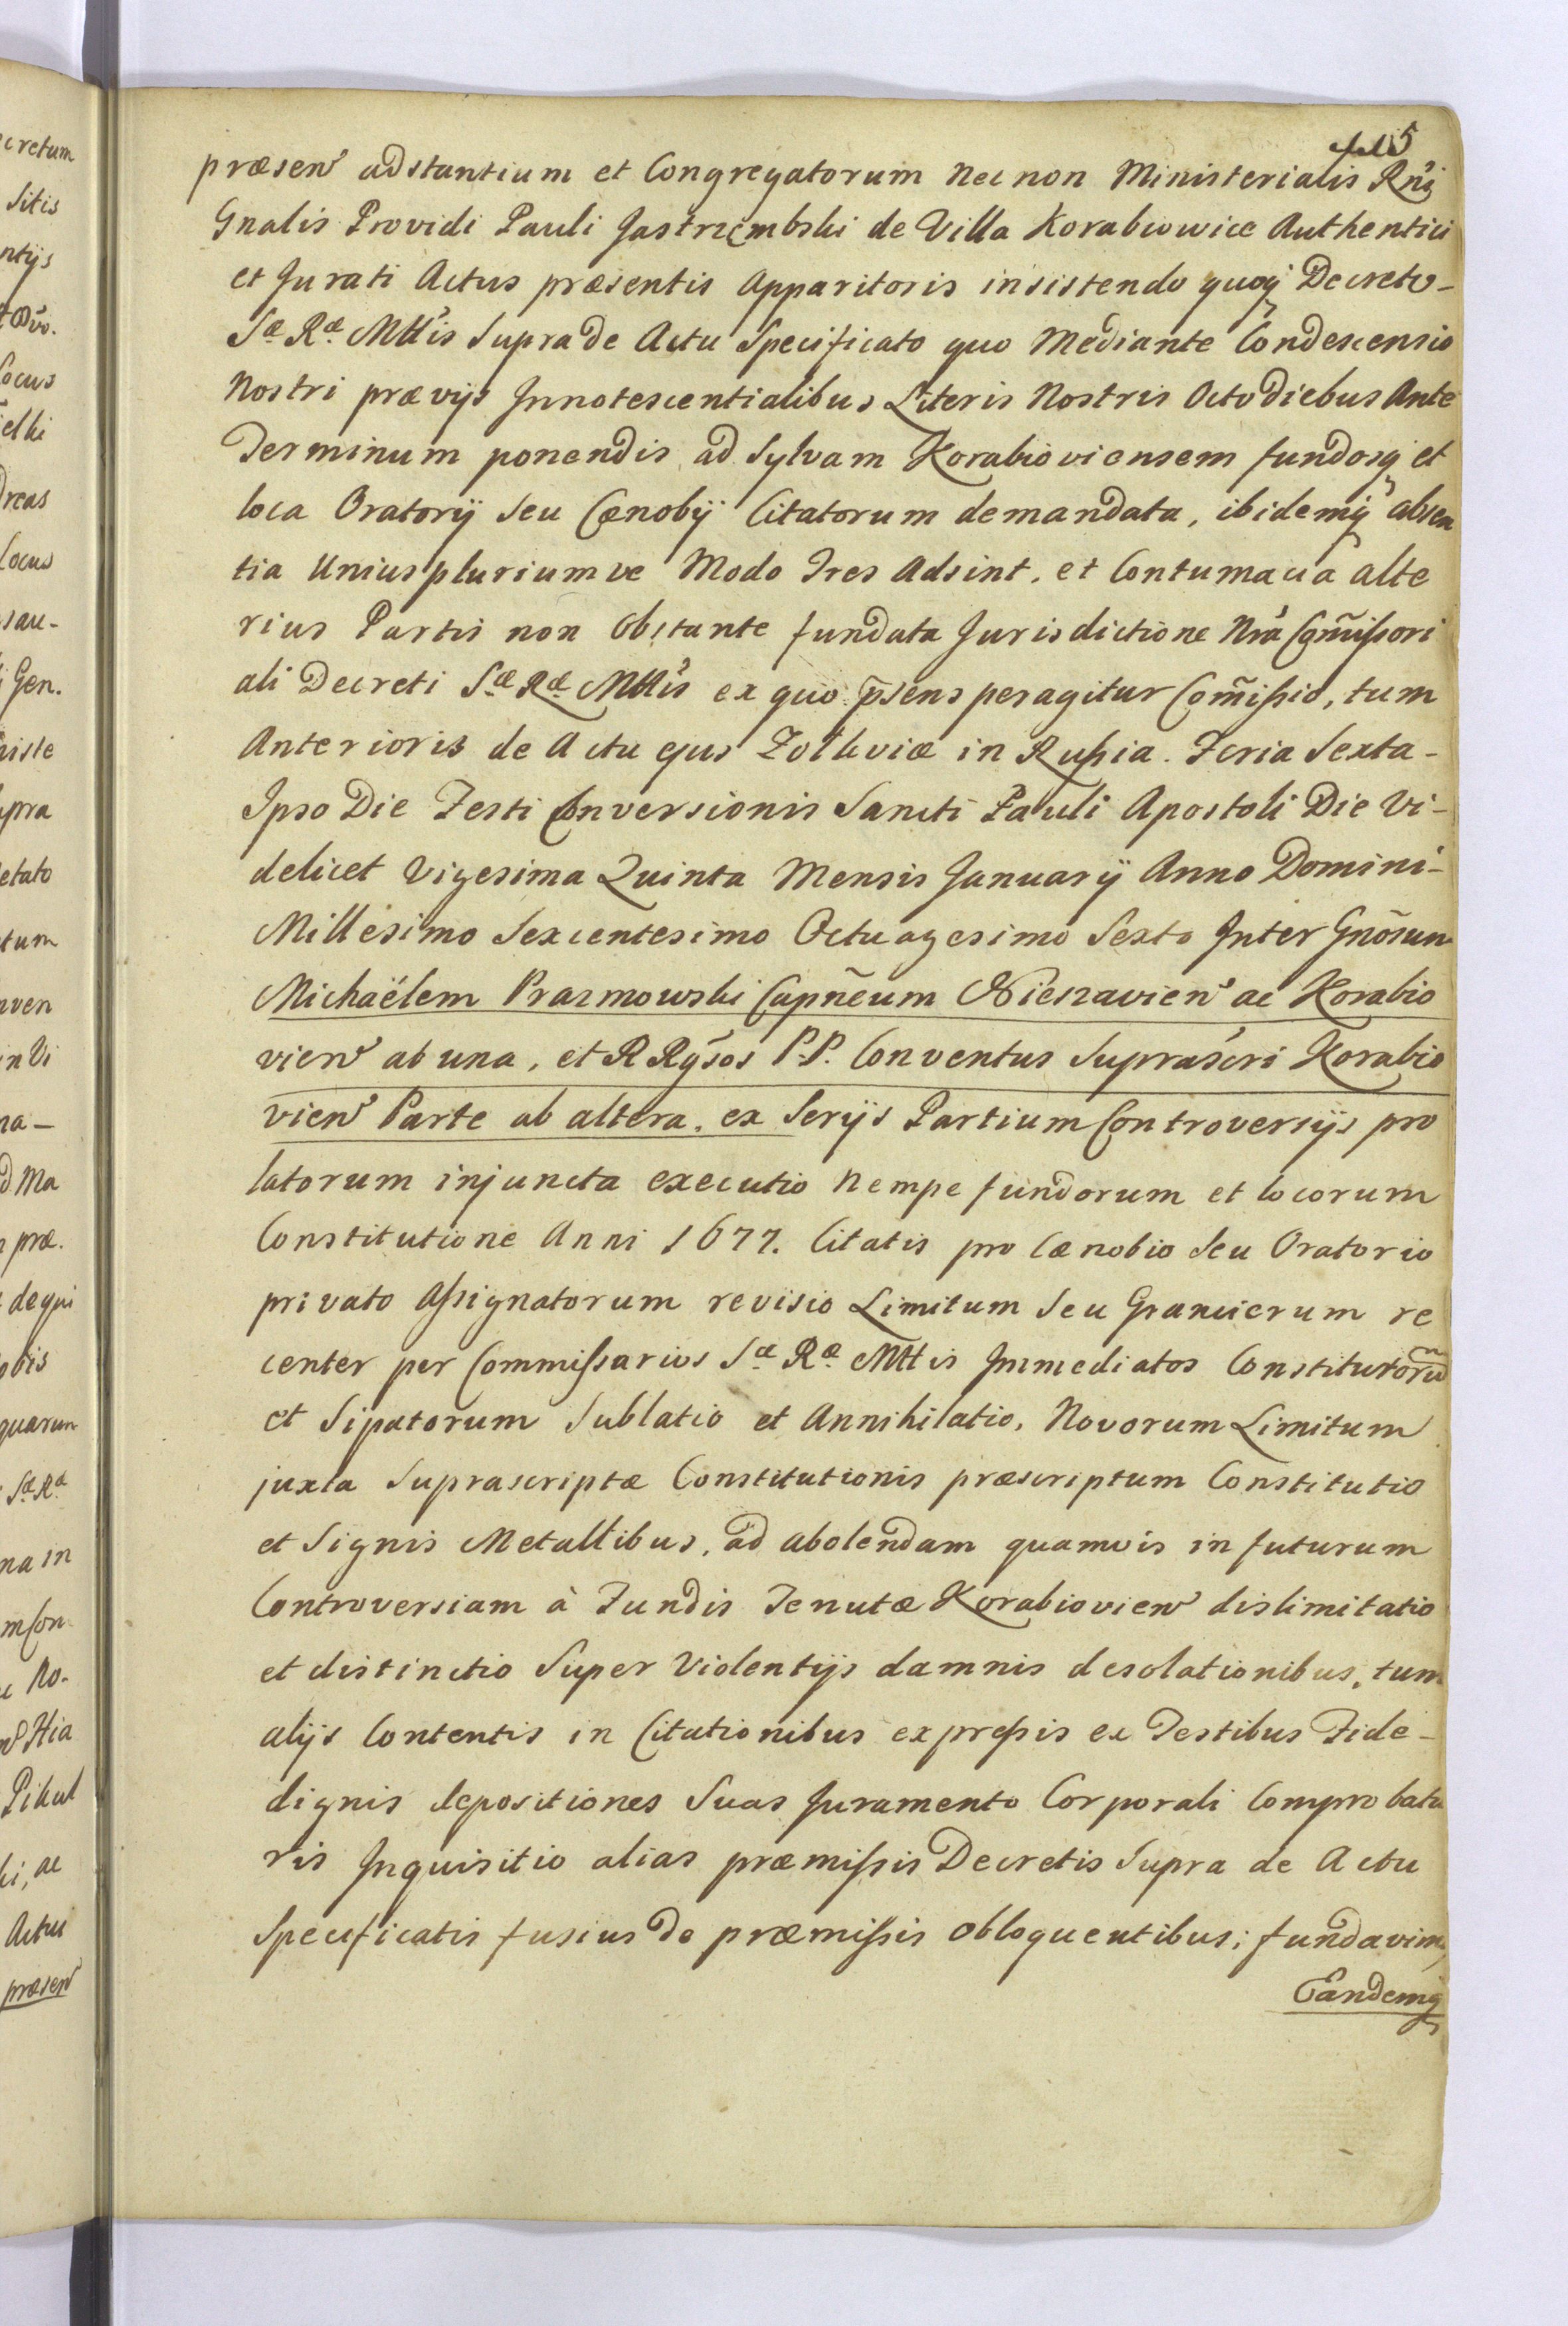 5
præsen adstantium et Congregatorum Nec non Ministerialis Rñi
Gnalis Providi Pauli Jastrzembski de Villa Korabiowice Authentici
et Jurati Actus præsentis Apparitoris insistendo quoq Decreto-
Sæ Ræ Mttis Supra de Actu Specificato quo Mediante Condescensio
Nostri prævijs Innotescentialibus Literis Nostris Octo diebus Ante
Terminum ponendis ad Sylvam Korabioviensem fundosq et
loca Oratorÿ seu Cænobÿ Citatorum demandata, ibidemq absen
tia Unius pluriumve Modo Tres Adsint, et Contumacia alte
rius Partis non Obstante fundata Jurisdictione Nrá Com̃issori
ali Decreti Sæ Ræ Mttis ex quo p̃sens peragitur Com̃issio, tum
Anterioris de Actu ejus Zolkviæ in Russia. Feria Sexta-
Ipso Die Festi Conversionis Sancti Pauli Apostoli Die Vi-
delicet Vigesima Quinta Mensis Januarÿ Anno Domini-
Millesimo Sexcentesimo Octuagesimo Sexto Inter Gnõsum
Michaëlem Prazmowski Capñeum Nieszavien ac Korabio
vien ab una, et R Rgsos P.P. Conventus Suprascri Korabio
vien Parte ab altera. ex Serijs Partium Controversijs pro
latorum injuncta executio Nempe fundorum et locorum
Constitutione Anni 1677. Citatis pro Cænobio Seu Oratorio
privato Assignatorum revisio Limitum Seu Granicierum re
center per Commissarios Sæ Ræ Mttis Immediatos Constitutorum
et Sipatorum Sublatio et Annihilatio, Novorum Limitum
juxta Suprascriptæ Constitutionis præscriptum Constitutio
et Signis Metallibus, ad abolendam quamvis in futurum
Controversiam à Fundis Tenutæ Korabiovien dislimitatio
et distinctio Super Violentijs damnis desolationibus, tum
alijs Contentis in Citationibus expressis ex Testibus Fide-
dignis depositiones Suas Juramento Corporali Comprobatu
ris Inquisitio alias præmissis Decretis Supra de Actu
Specificatis fusius de præmissis obloquentibus; fundavim,
Eandemq